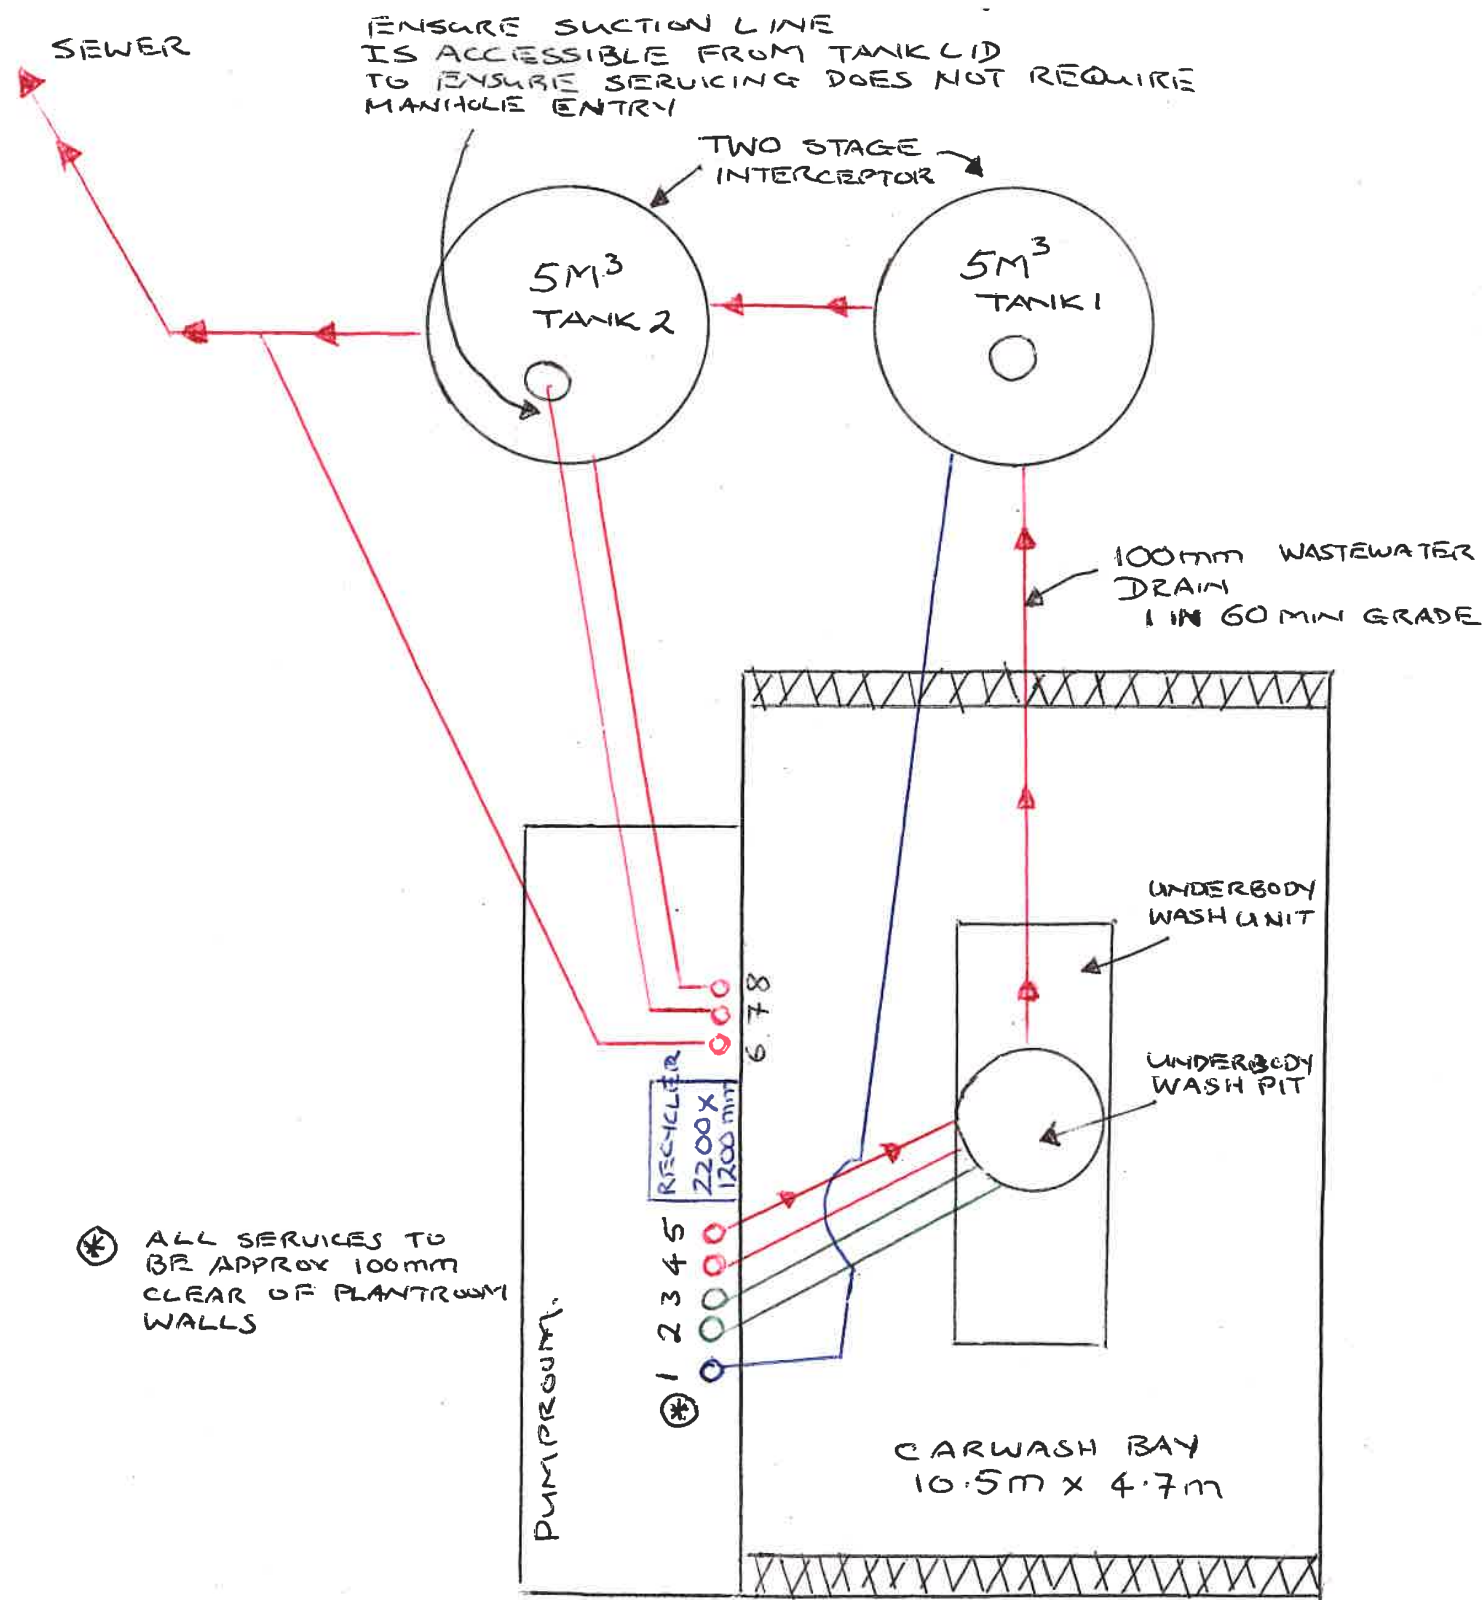 SEWER
ENSURE SUCTION LINE
IS ACCESSIBLE FROM TANK LID
TO ENSURE SERVICING DOES NOT REQUIRE
MANHOLE ENTRY
TWO STAGE
INTERCEPTOR
5M³
TANK 2
5M³
TANK 1
100mm WASTEWATER
DRAIN
1 IN 60 MIN GRADE
UNDERBODY
WASH UNIT
8
7
6
UNDERBODY
WASH PIT
RECYCLER
2200 X
1200mm
5
4
3
2
1
* ALL SERVICES TO
BE APPROX 100mm
CLEAR OF PLANTROOM
WALLS
*
PUMPROOM.
CARWASH BAY
10.5m x 4.7m